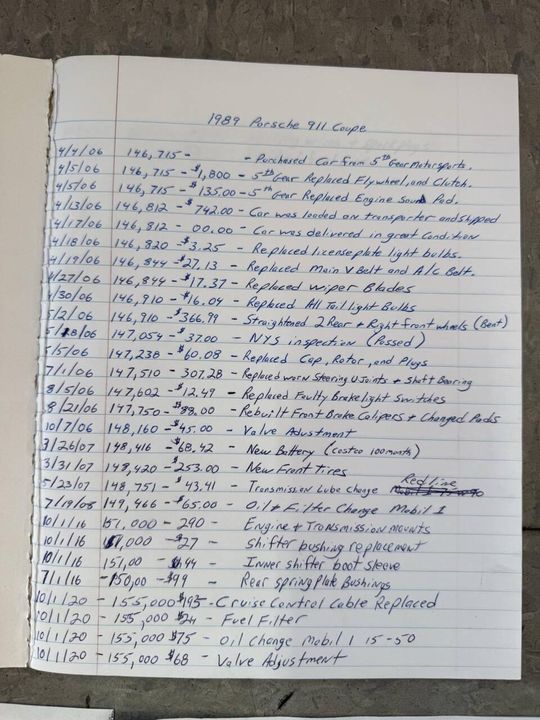 1989 Porsche 911 Coupe
4/4/06 146,715 - - Purchased Car from 5th Gear Motorsports.
4/5/06 146,715 - $1,800 - 5th Gear Replaced Flywheel, and Clutch.
4/5/06 146,715 - $135.00 - 5th Gear Replaced Engine sound Pad.
4/13/06 146,812 - $742.00 - Car was loaded on transporter and shipped
4/17/06 146,812 - 00.00 - Car was delivered in great Condition
4/18/06 146,820 - $3.25 - Replaced license plate light bulbs.
4/19/06 146,844 - $27.13 - Replaced Main V Belt and A/C Belt.
4/27/06 146,844 - $17.37 - Replaced wiper Blades
4/30/06 146,910 - $16.04 - Replaced All Tail light Bulbs
5/2/06 146,910 - $366.99 - Straightened 2 Rear + Right Front wheels (Bent)
5/18/06 147,054 - $37.00 - NYS inspection (Passed)
5/5/06 147,238 - $60.08 - Replaced Cap, Rotor, and Plugs
7/1/06 147,510 - 307.28 - Replaced worn Steering U Joints + Shaft Bearing
8/5/06 147,602 - $12.49 - Replaced Faulty Brakelight Switches
8/21/06 147,750 - $88.00 - Rebuilt Front Brake Calipers + Changed Pads
10/7/06 148,160 - $45.00 - Valve Adustment
3/26/07 148,416 - $68.42 - New Battery (Costco 100 month)
3/31/07 148,420 - $253.00 - New Front Tires
5/23/07 148,751 - $43.41 - Transmission Lube Change Redline
7/19/08 149,466 - $65.00 - Oil + Filter Change Mobil 1
10/1/16 151,000 - 290 - Engine + Transmission mounts
10/1/16 151,000 - $27 - shifter bushing replacement
10/1/16 151,00 - $44 - Inner shifter boot sleeve
7/1/16 - 150,00 - $99 - Rear spring Plate Bushings
10/1/20 - 155,000 $195 - Cruise Control Cable Replaced
10/1/20 - 155,000 $24 - Fuel Filter
10/1/20 - 155,000 $75 - Oil Change Mobil 1 15-50
10/1/20 - 155,000 $68 - Valve Adjustment